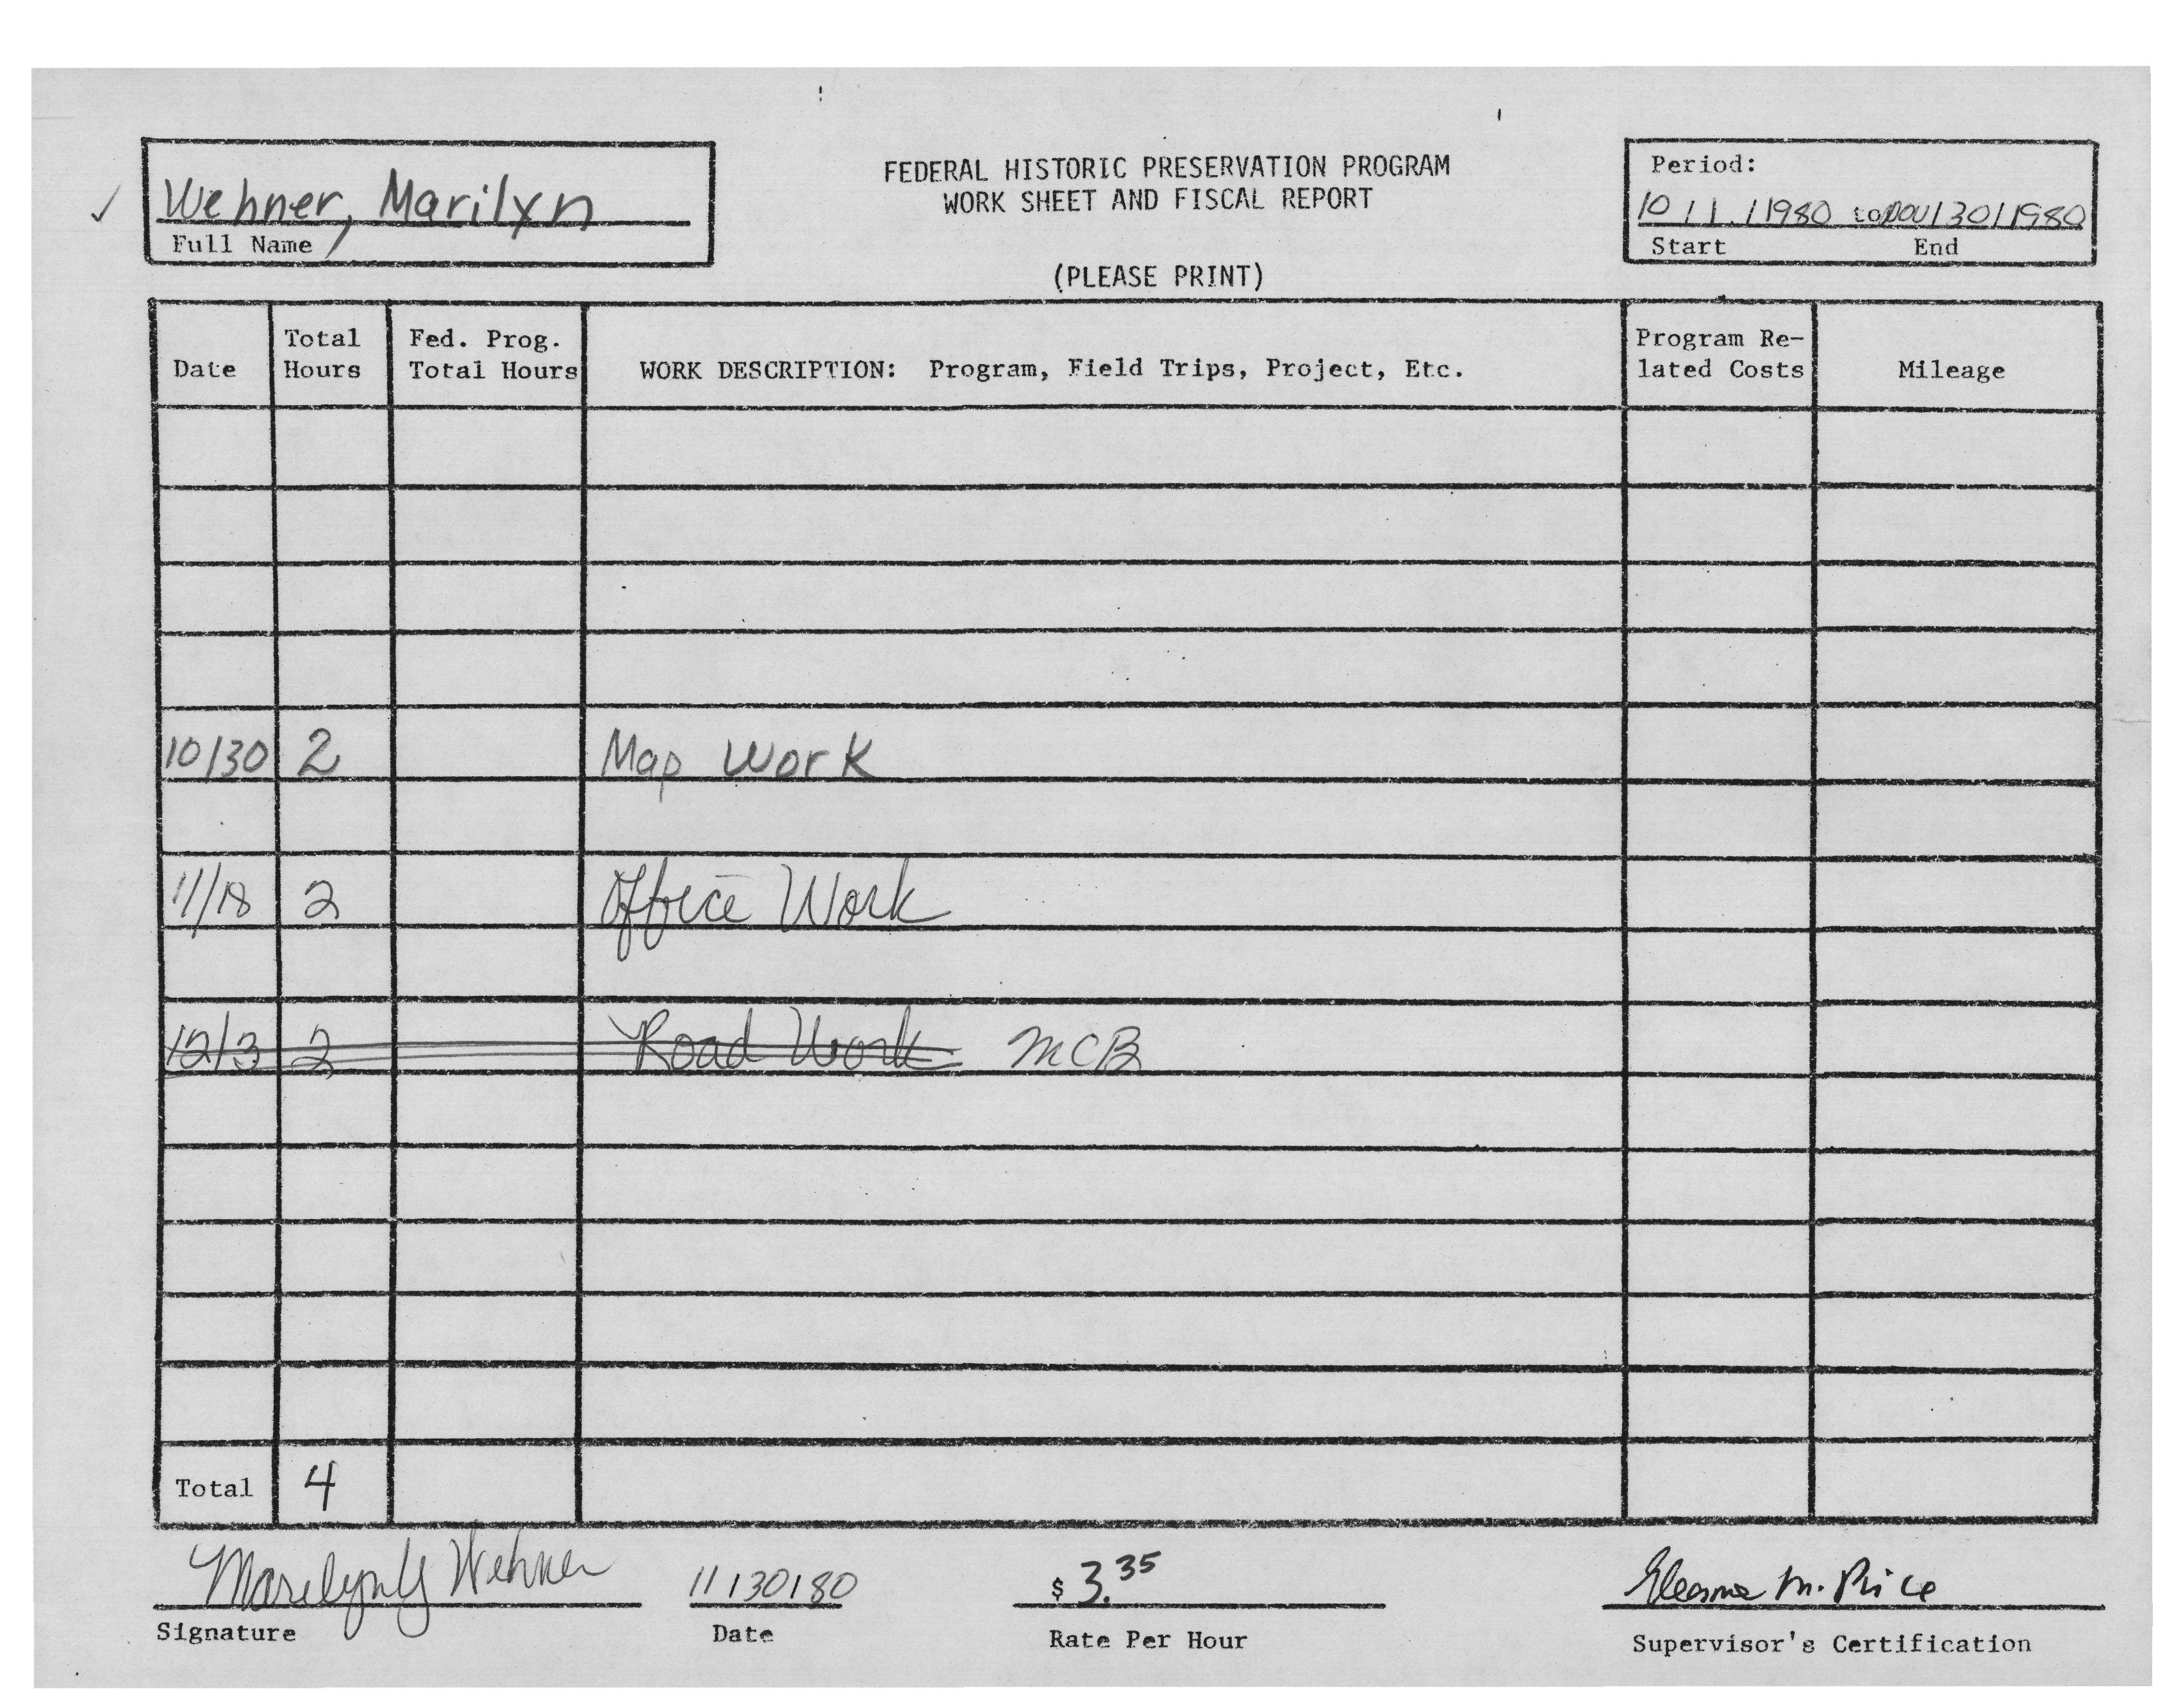 Wehner, Marilyn
Full Name
FEDERAL HISTORIC PRESERVATION PROGRAM
WORK SHEET AND FISCAL REPORT
(PLEASE PRINT)
Period:
10 / 1 / 1980 to NOV / 30 / 1980
Start End
Date Total Hours Fed. Prog. Total Hours WORK DESCRIPTION: Program, Field Trips, Project, Etc. Program Re-lated Costs Mileage
10/30 2 Map Work
11/18 2 Office Work
12/3 2 Road Work MCB
Total 4
Marilyn G Wehner 11/30/80 $ 3.35 Eleanor M. Price
Signature Date Rate Per Hour Supervisor's Certification